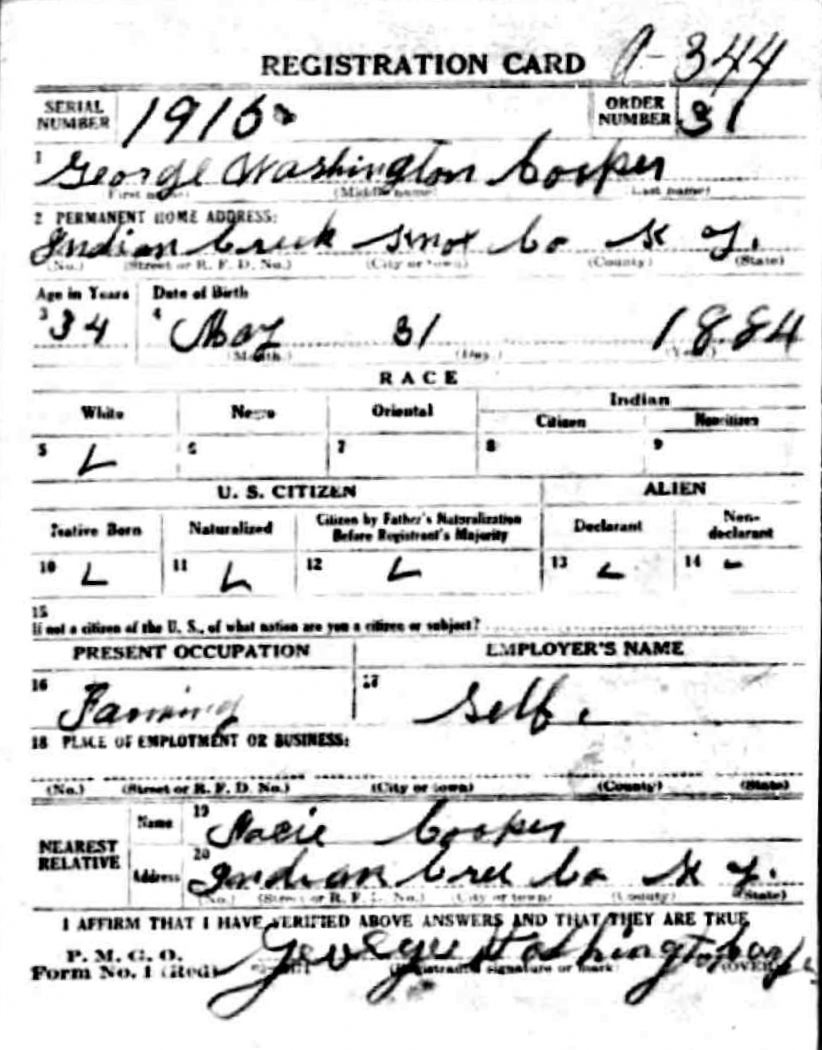 REGISTRATION CARD A-344
SERIAL NUMBER 1916 ORDER NUMBER 31
1 George Washington Cooper
(First name) (Middle name) Last name)
2 PERMANENT HOME ADDRESS:
Indian Creek Knox Co K Y.
(No.) (Street or R. F. D. No.) (City or town) (County) (State)
Age in Years Date of Birth
3 34 4 May 31 1884
(Month.) (Day.) (Year.)
RACE
White Negro Oriental Indian
Citizen Noncitizen
5 L 6 7 8 9
U. S. CITIZEN ALIEN
Native Born Naturalized Citizen by Father's Naturalization Before Registrant's Majority Declarant Non-declarant
10 L 11 L 12 L 13 L 14 -
15
If not a citizen of the U. S., of what nation are you a citizen or subject?
PRESENT OCCUPATION EMPLOYER'S NAME
16 Farming 17 Self.
18 PLACE OF EMPLOYMENT OR BUSINESS:
(No.) (Street or R. F. D. No.) (City or town) (County) (State)
NEAREST RELATIVE Name 19 Cooper
Address 20 Indian Cree Co K Y.
(No.) (Street or R. F. D. No.) (City or town) (County) (State)
I AFFIRM THAT I HAVE VERIFIED ABOVE ANSWERS AND THAT THEY ARE TRUE
P. M. G. O.
Form No. 1 (Red) George Washington (Registrant's signature or mark) (OVER)